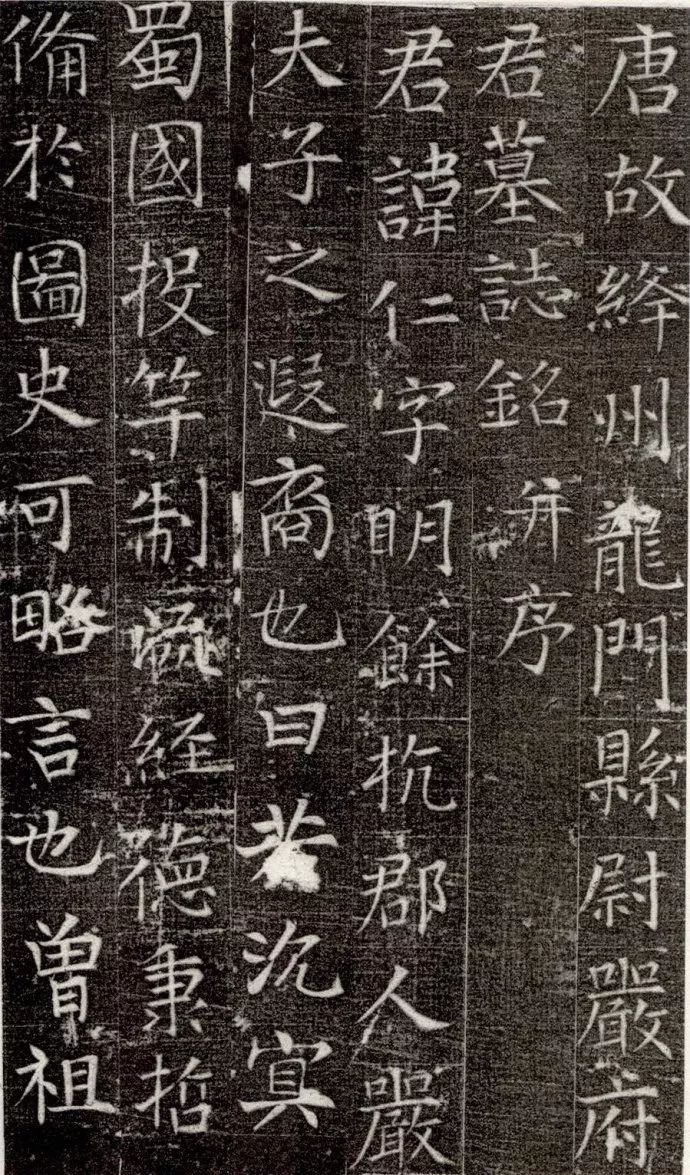 唐故絳州龍門縣尉嚴府
君墓誌銘并序
君諱仁字明餘杭郡人嚴
夫子之遐裔也曰若沉寘
蜀國投竿制巘経德秉哲
備於圖史可略言也曾祖